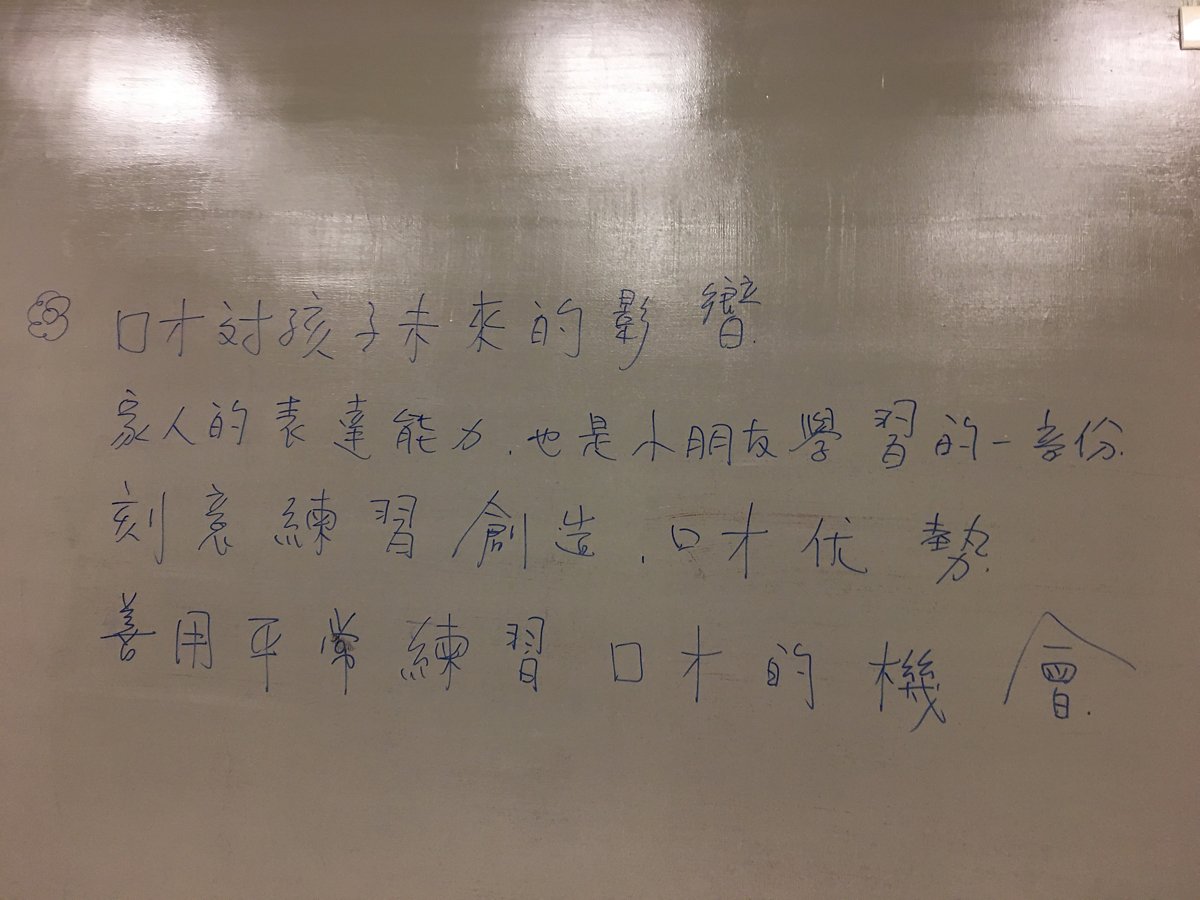 口才对孩子未來的影響
家人的表達能力.也是小朋友學習的一部份.
刻意練習創造.口才优勢.
善用平常練習口才的機會.